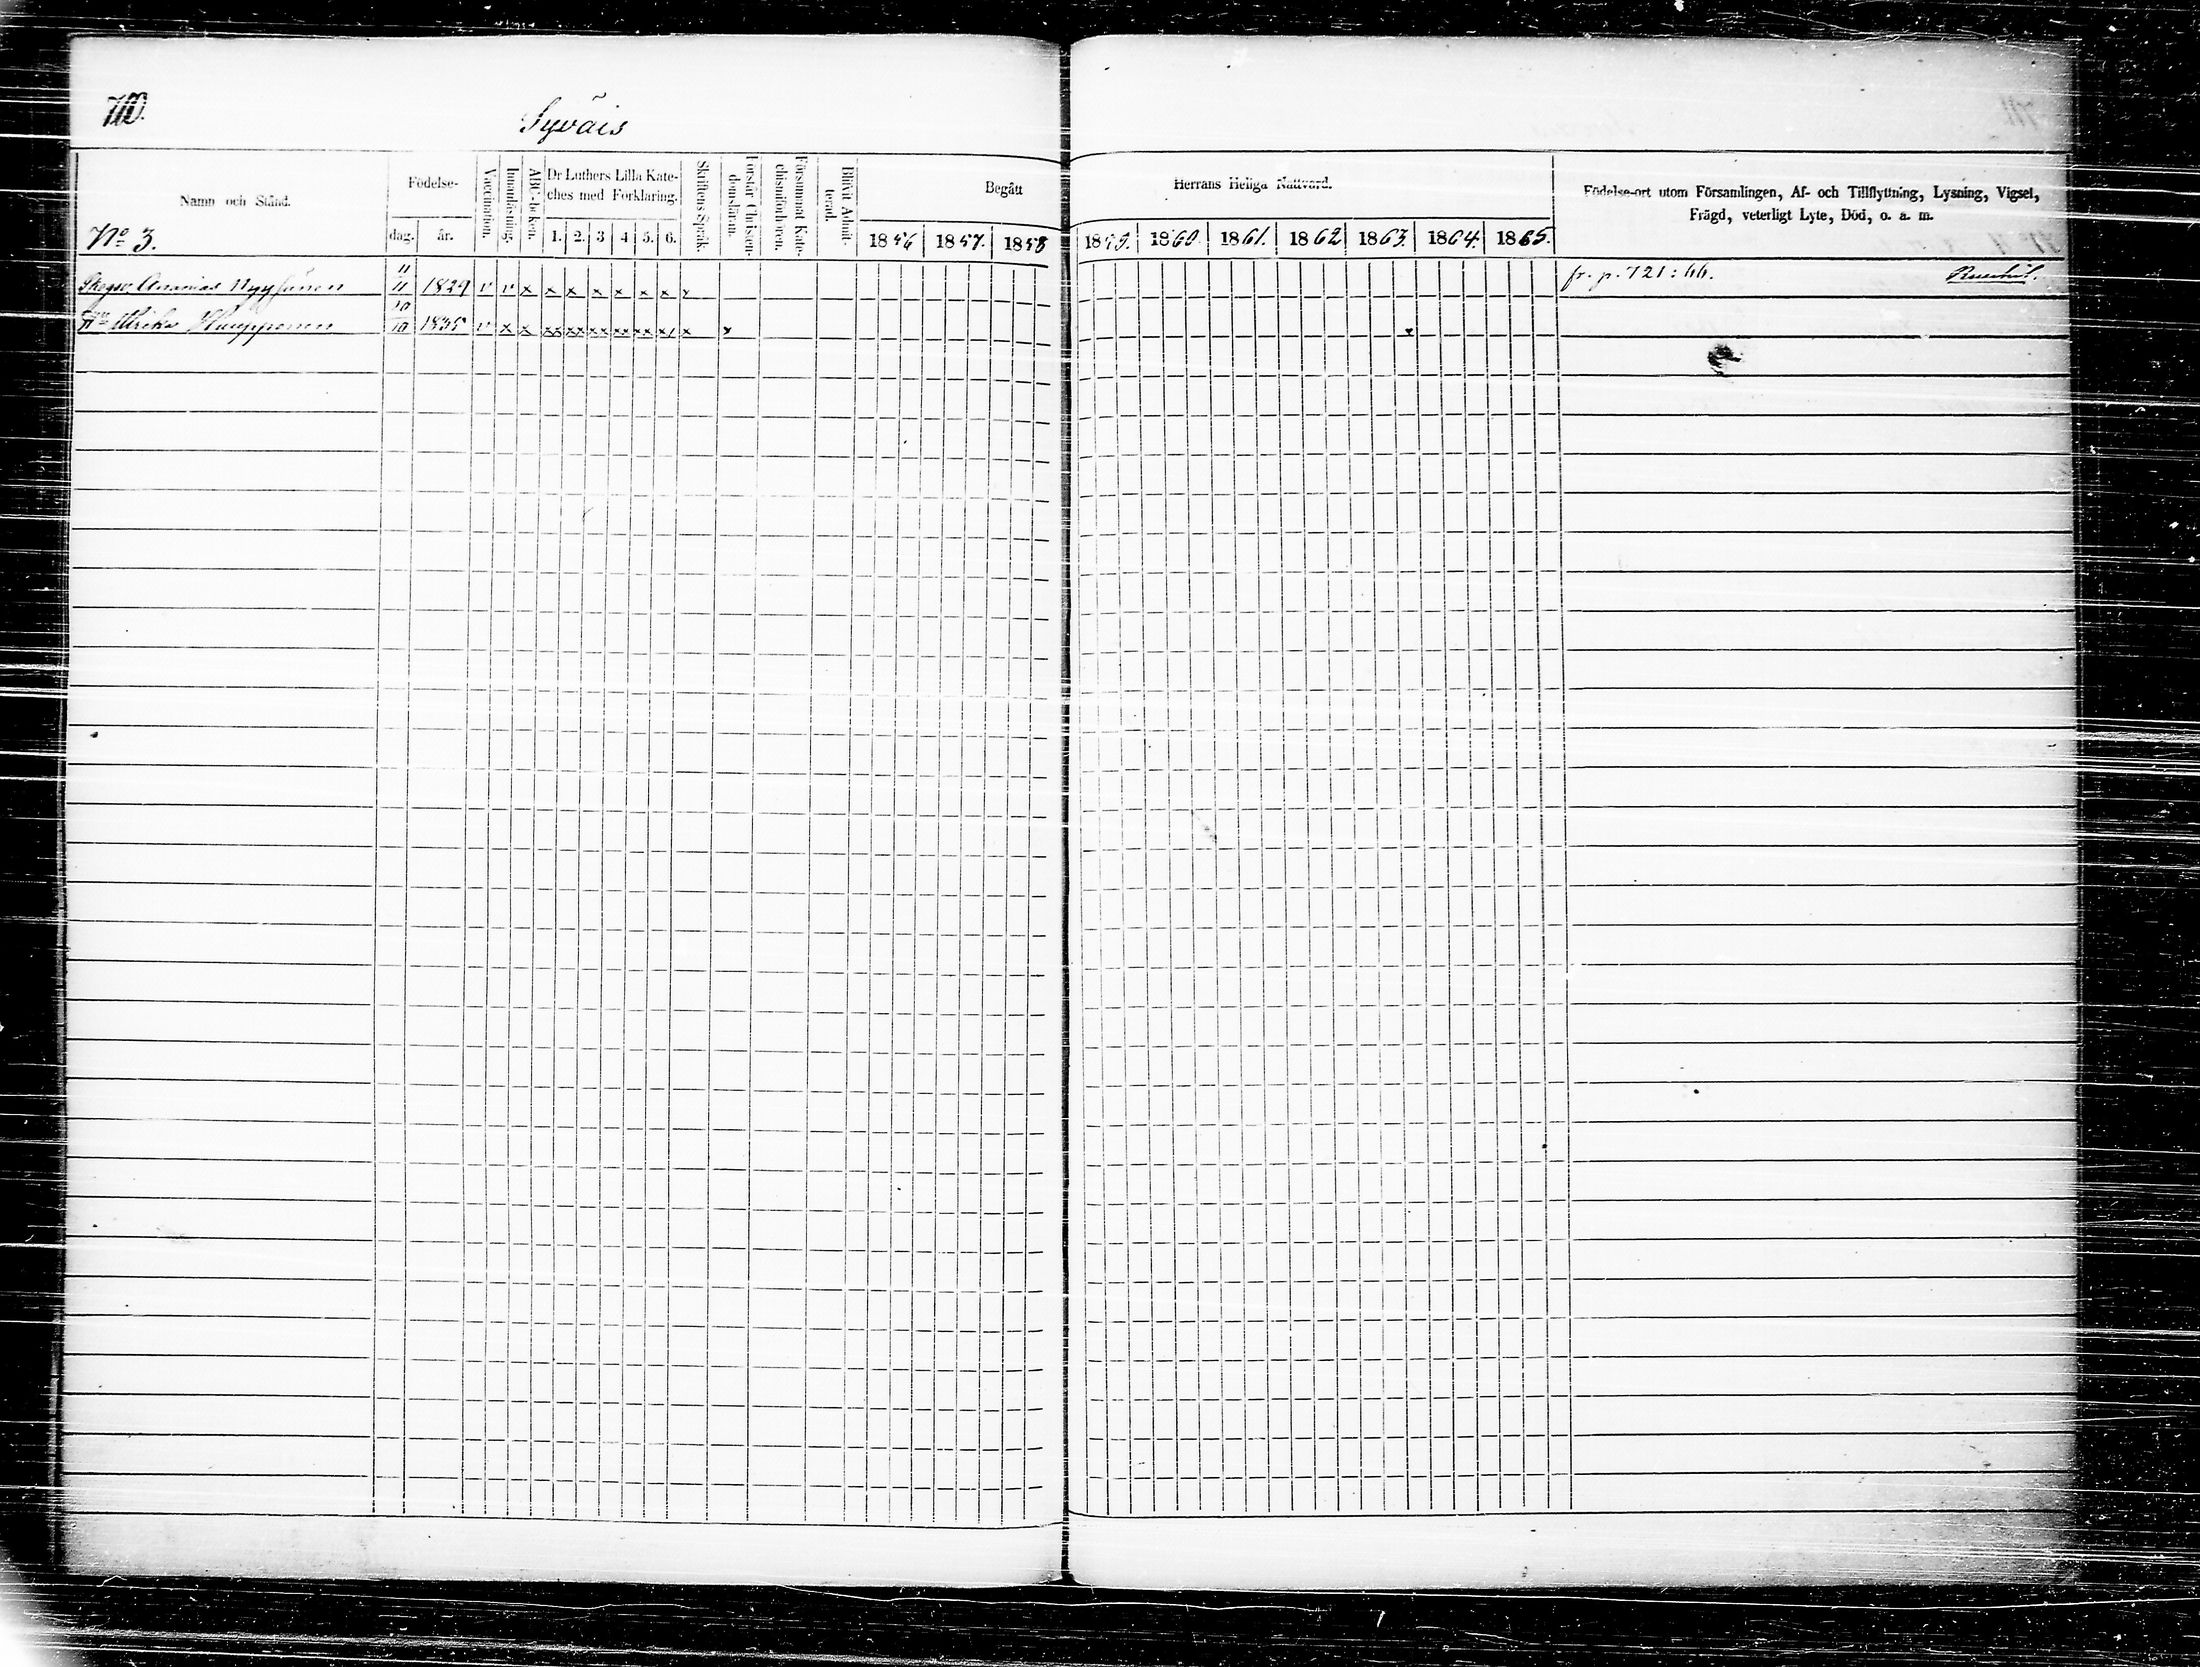 710.
Syväis
Namn och Stånd.
No 3.
Födelse-
dag. år.
Vaccination.
Innanläsning.
ABC-boken.
Dr Luthers Lilla Kate-
ches med Förklaring.
1. 2. 3 4 5. 6.
Skriftens Språk.
Förstår Christen-
domsläran.
Försummat Kate-
chismiförhören.
Blifvit Admit-
terad.
Begått
1856 1857. 1858
Herrans Heliga Nattvard.
1859. 1860. 1861. 1862 1863. 1864. 1865.
Födelse-ort utom Församlingen, Af- och Tillflyttning, Lysning, Vigsel,
Frägd, veterligt Lyte, Död, o. a. m.
Ananias Nyyssönen 11/11 1829 v v x x x x x x x x fr. p. 721: 66.
Hu Ulrika Kauppinen 10/10 1835 v x x xx xx xx xx xx x x x x